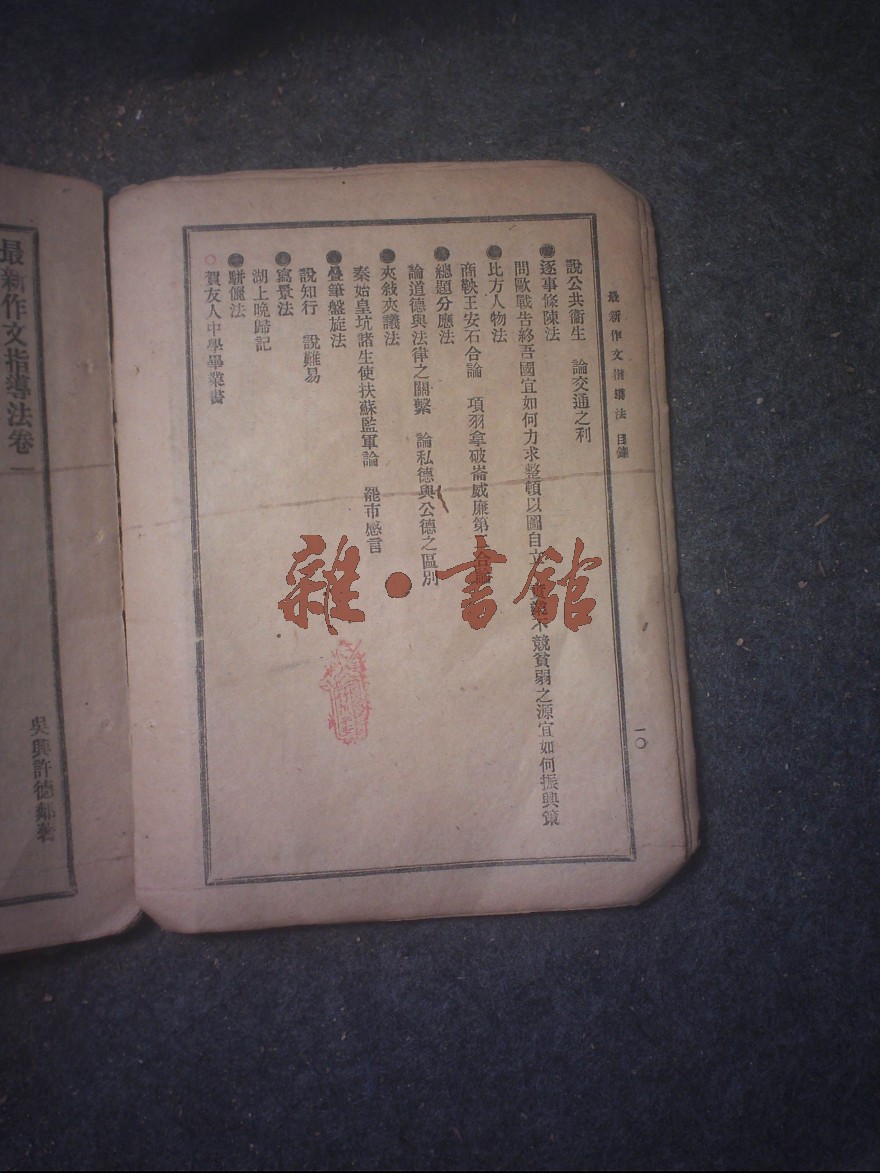 最新作文指導法 目錄
一〇
說公共衞生　論交通之利
●逐事條陳法
問歐戰告終吾國宜如何力求整頓以圖自立　不競貧弱之源宜如何振興策
●比方人物法
商鞅王安石合論　項羽拿破崙威廉第
●總題分應法
論道德與法律之關繫　論私德與公德之區別
●夾敍夾議法
秦始皇坑諸生使扶蘇監軍論　罷市感言
●疊筆盤旋法
說知行　說難易
●寫景法
湖上晚歸記
●駢儷法
○賀友人中學畢業書
最新作文指導法卷一
吳興許德鄰著
雜·書館